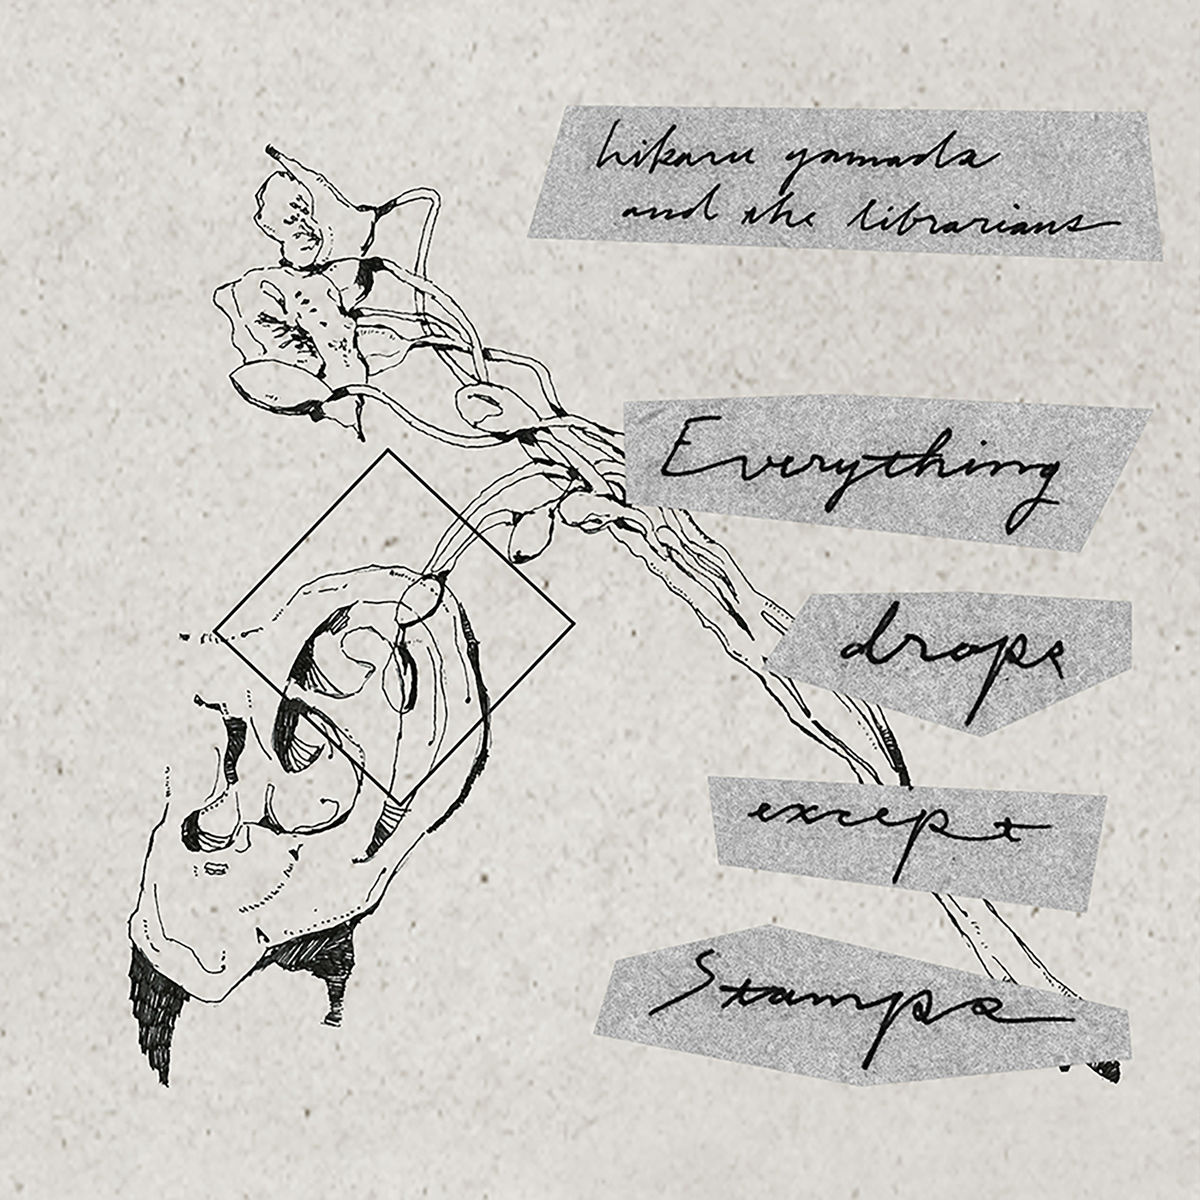 hikaru yamada
and the librarians
Everything
drops
except
Stamps